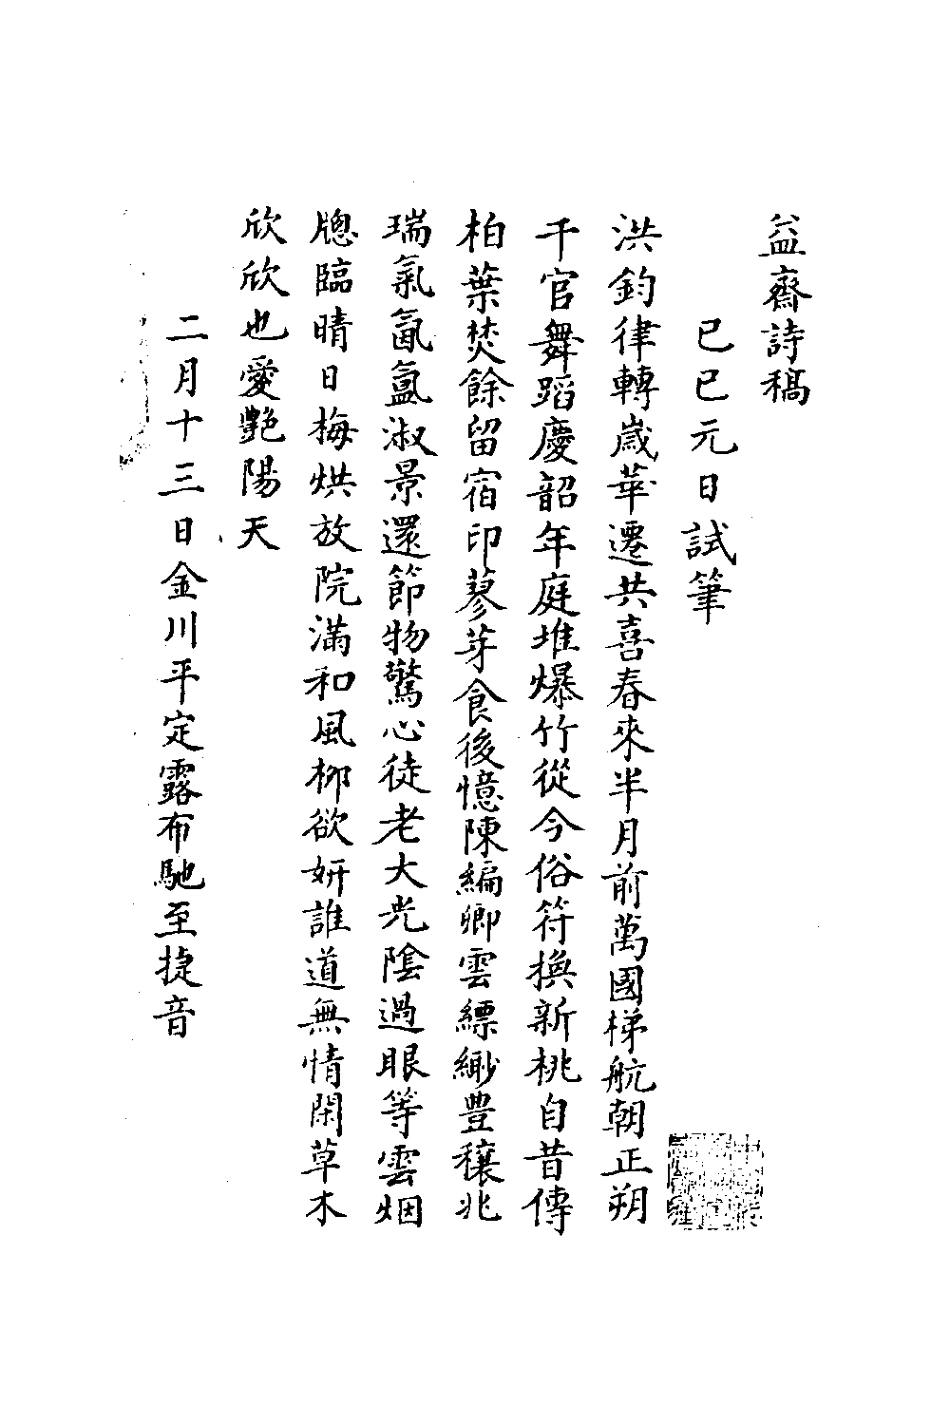 益齋詩稿
己巳元日試筆
洪鈞律轉歲華遷共喜春來半月前萬國梯航朝正朔
千官舞蹈慶韶年庭堆爆竹從今俗符換新桃自昔傳
柏葉焚餘留宿印蓼芽食後憶陳編卿雲縹緲豊穰兆
瑞氣氤氳淑景還節物驚心徒老大光陰過眼等雲烟
牕臨晴日梅烘放院滿和風柳欲妍誰道無情閑草木
欣欣也愛艷陽天
二月十三日金川平定露布馳至捷音